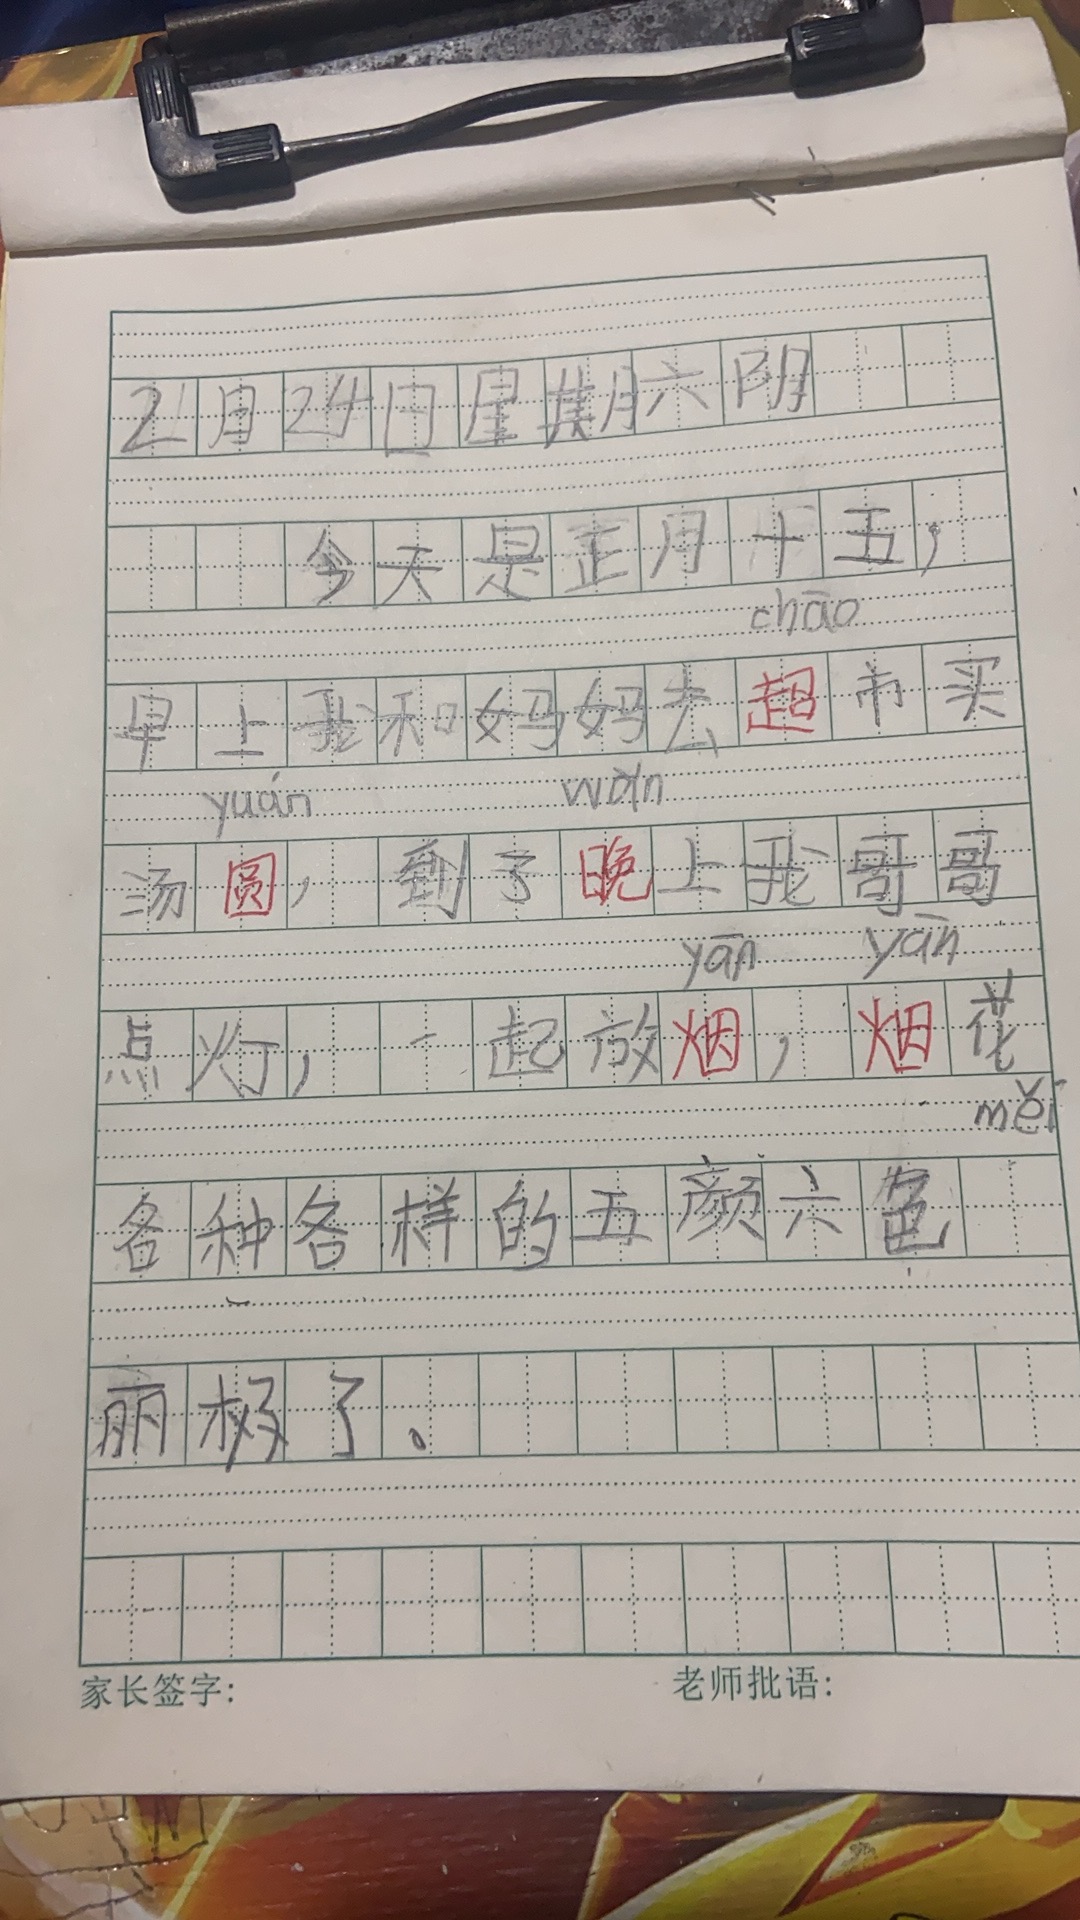 2月24日星期六阴
今天是正月十五，
chāo
早上我和妈妈去超市买
yuán wǎn
汤圆，到了晚上我哥哥
yān yān
点灯，一起放烟，烟花
měi
各种各样的五颜六色
丽极了。
家长签字：
老师批语：